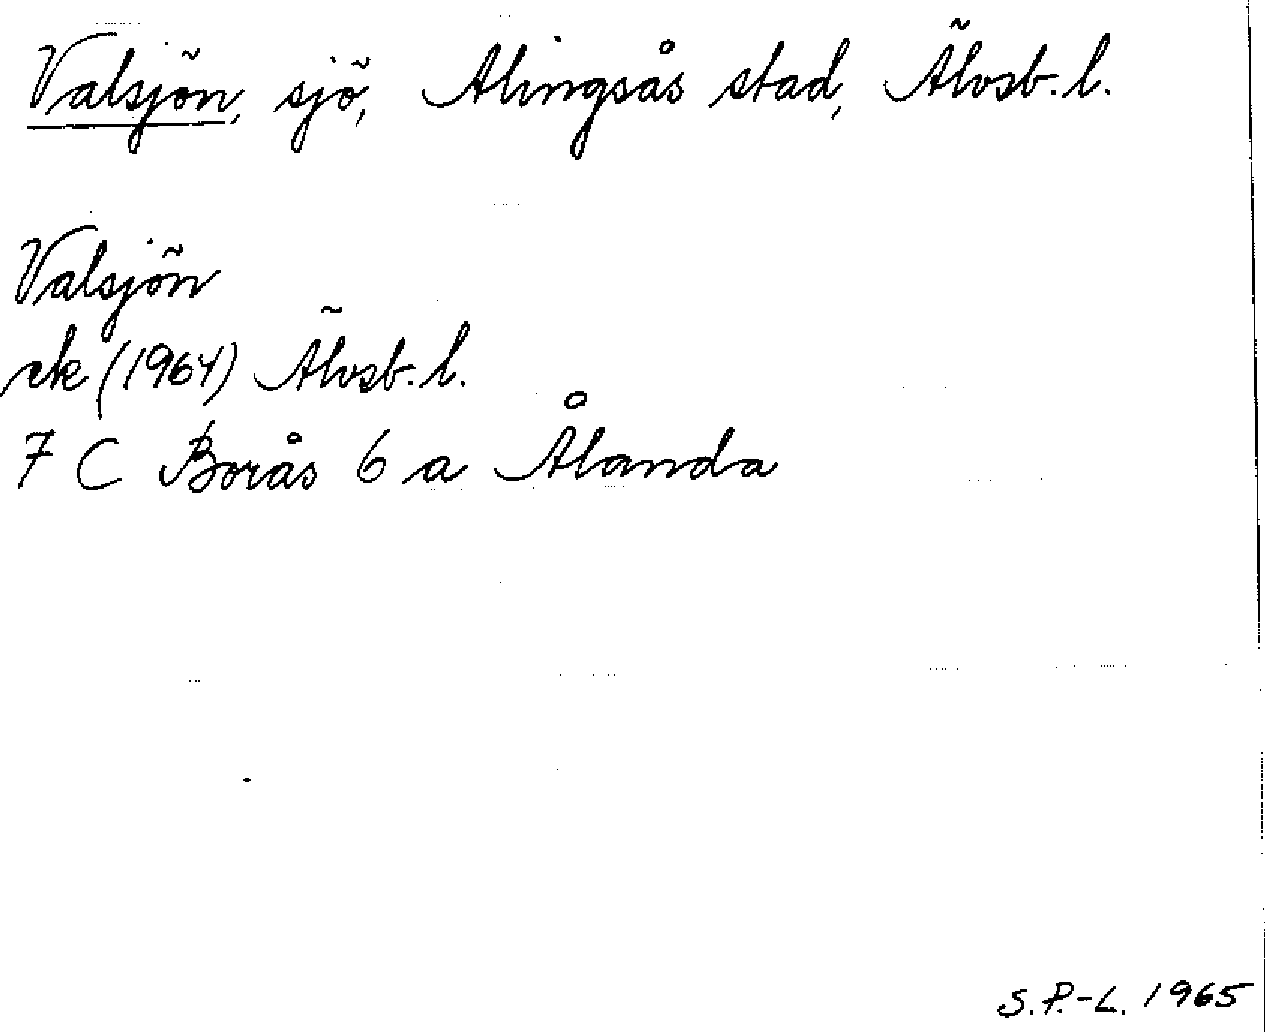 Valsjön, sjö, Alingsås stad, Älvsb. l.
Valsjön
ek (1964) Älvsb. l.
7 C Borås 6 a Ålanda
S. P.-L. 1965